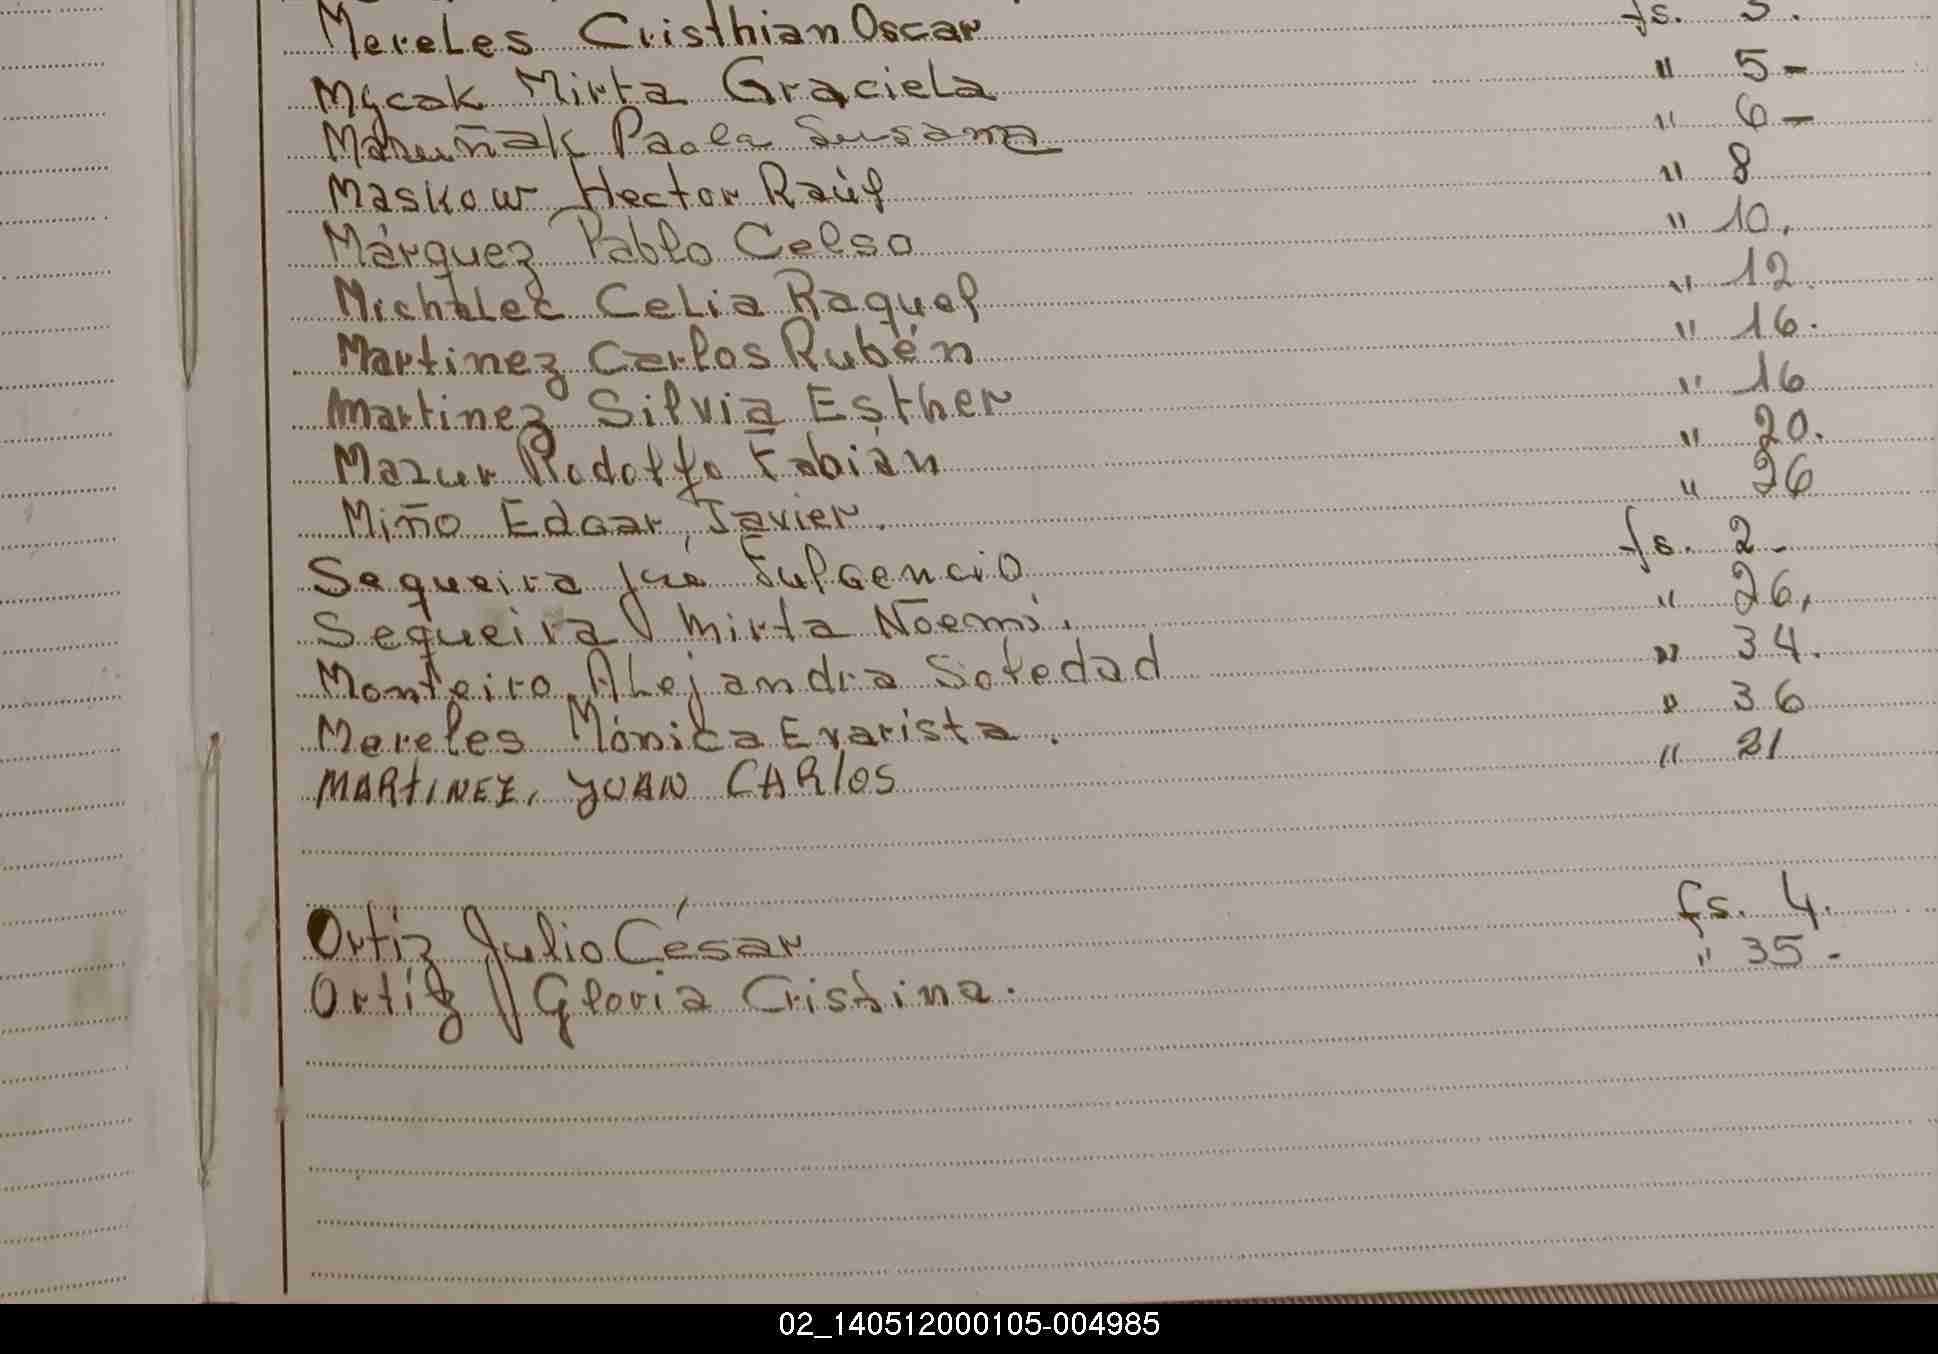 Mereles Cristhian Oscar fs. 3.
Mycak Mirta Graciela " 5-
Mazuñak Paola Susana " 6-
Maskow Hector Raúl " 8
Márquez Pablo Celso " 10.
Michalec Celia Raquel " 12.
Martinez Carlos Rubén " 16.
Martinez Silvia Esther " 16
Mazur Rodolfo Fabián " 20.
Miño Edgar Javier. " 26
Sequeira José Fulgencio fs. 2-
Sequeira Mirta Noemí. " 26.
Monteiro Alejandra Soledad " 34.
Mereles Mónica Evarista. " 36
MARTINEZ, JUAN CARlOS " 21
Ortiz Julio César fs. 4.
Ortíz Gloria Cristina. " 35-
02_140512000105-004985